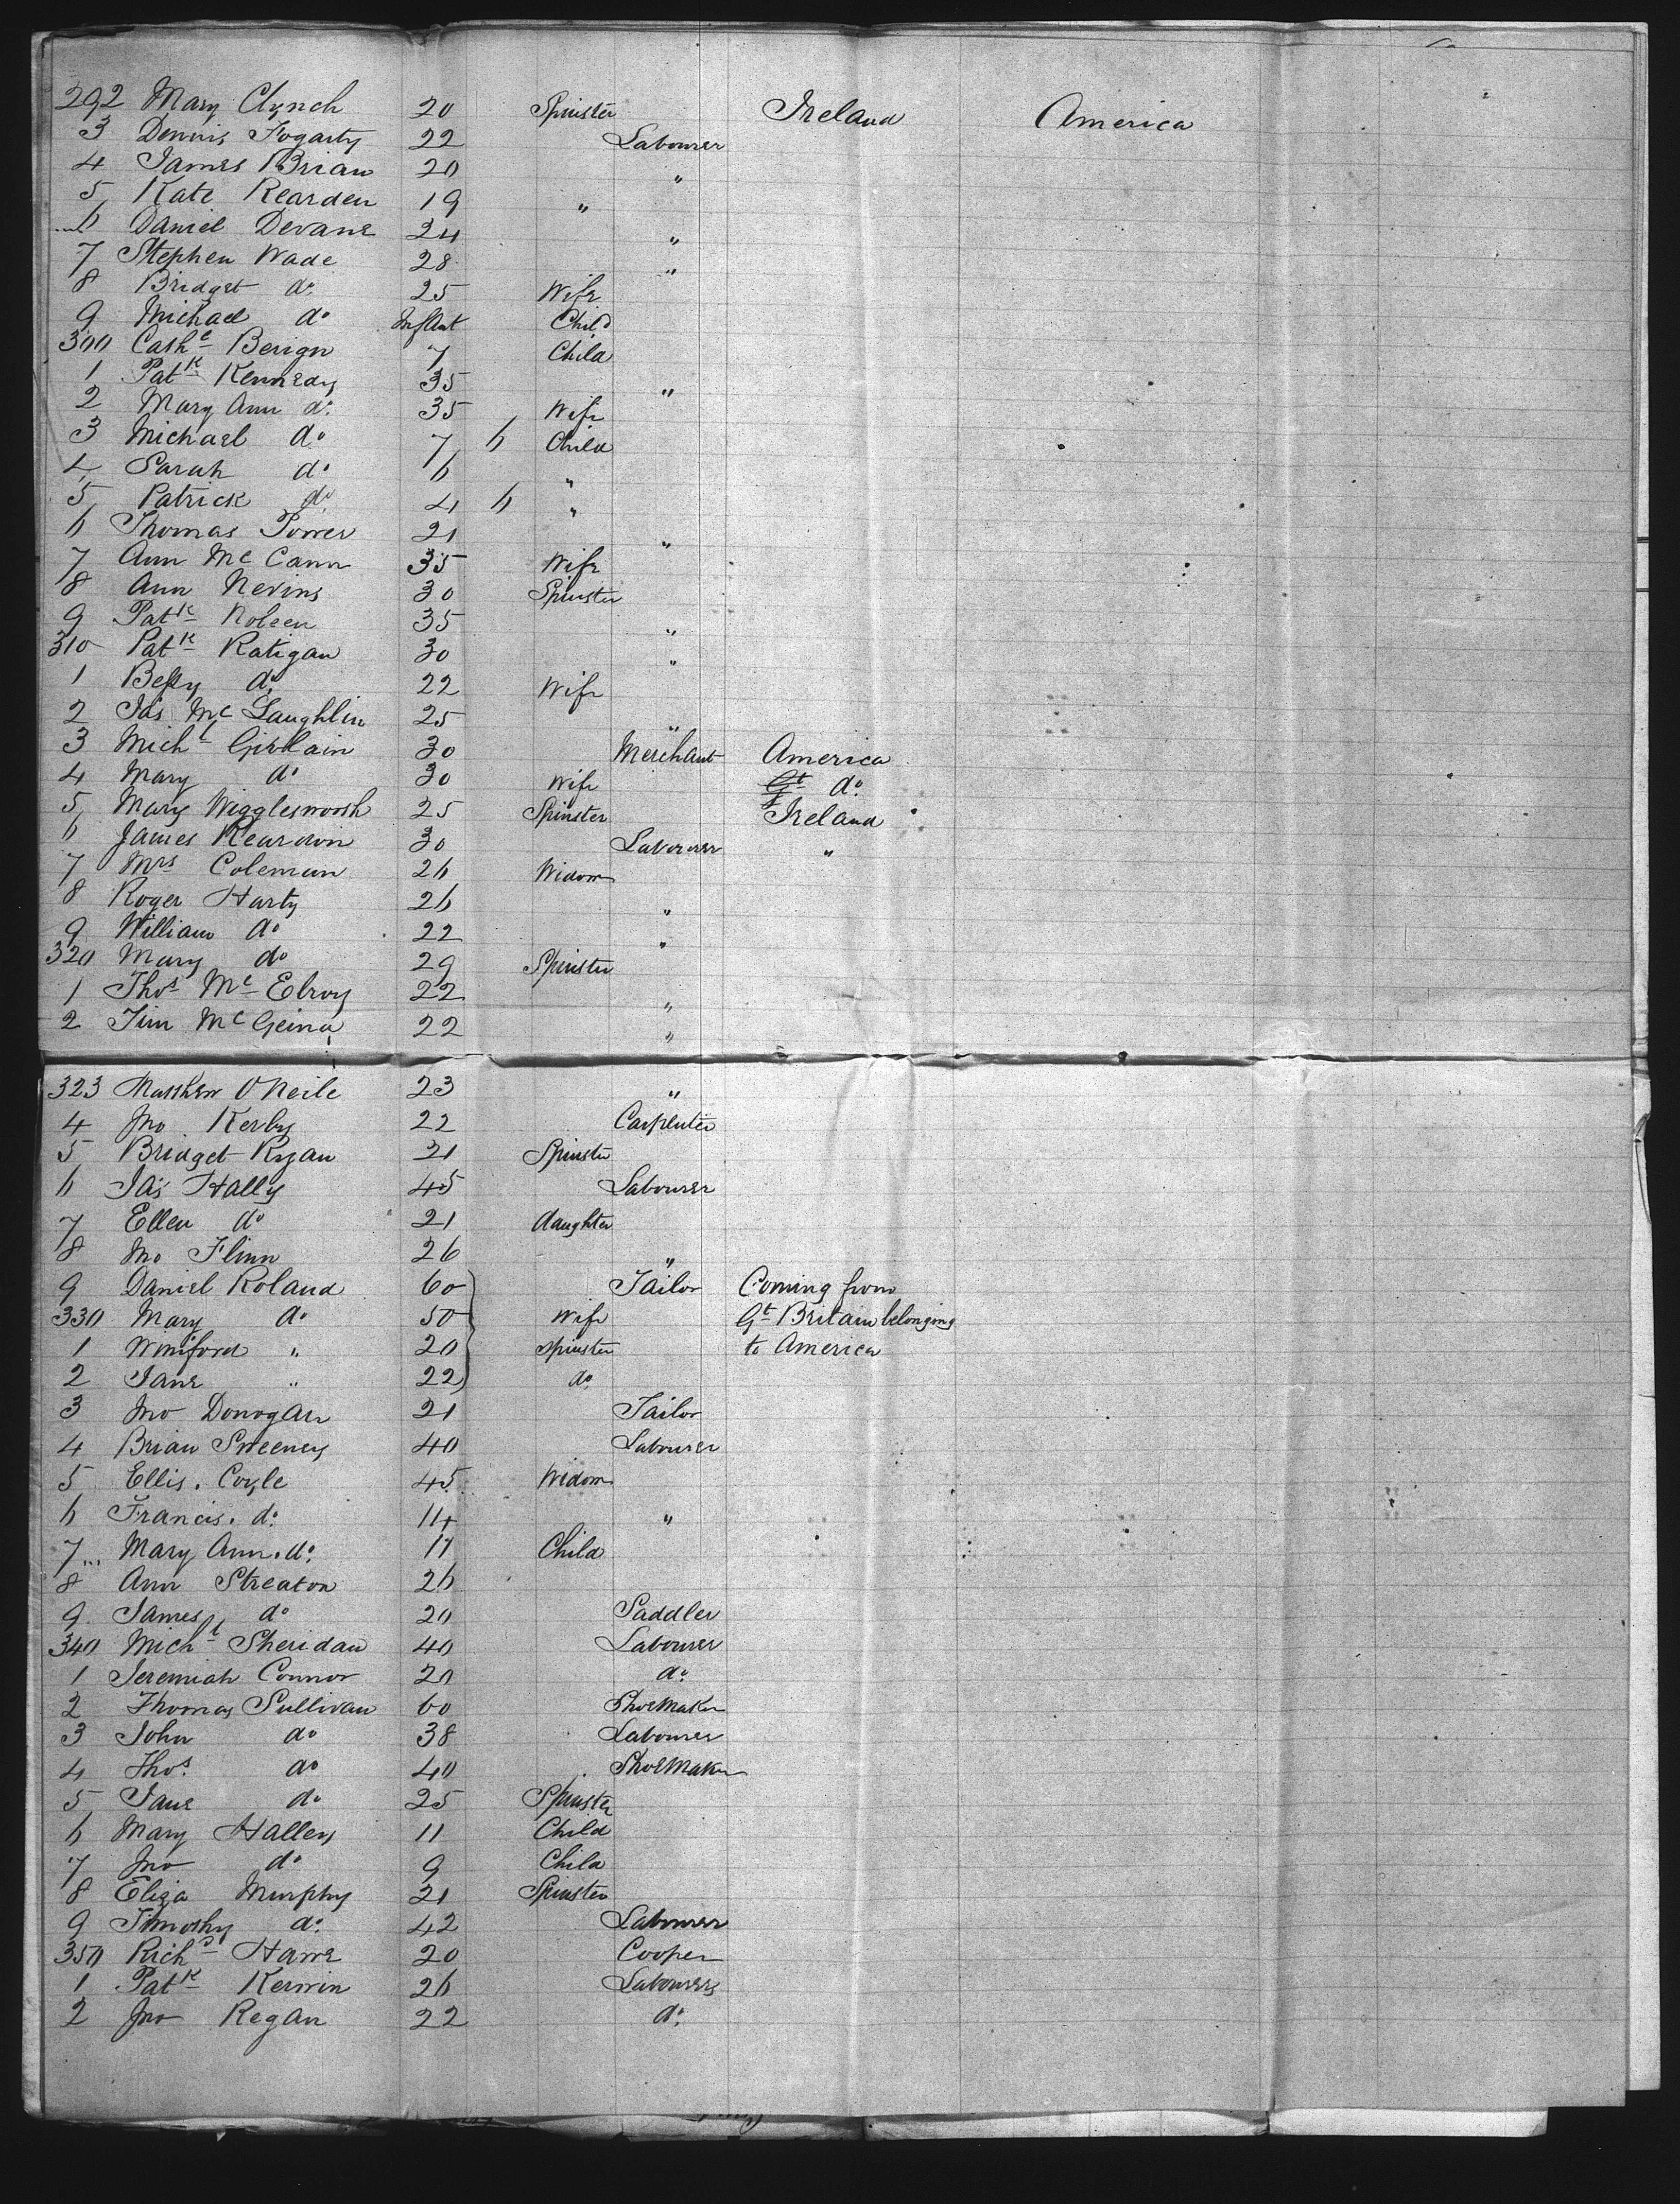 292 Mary Clynch 20 Spinster Ireland America
3 Dennis Fogarty 22 Labourer
4 James Brian 20 "
5 Kate Rearden 19 "
6 Daniel Devane 24 "
7 Stephen Wade 28 "
8 Bridget do 25 Wife
9 Michael do Infant Child
300 Cathe Berign 7 Child
1 Patk Kennedy 35 "
2 Mary Ann do 35 Wife
3 Michael do 7 6 Child
4 Sarah do 6 "
5 Patrick do 4 6 "
6 Thomas Power 21 "
7 Ann Mc Cann 35 Wife
8 Ann Nevins 30 Spinster
9 Patk Noleen 35 "
310 Patk Ratigan 30 "
1 Bessy do 22 Wife
2 Jas Mc Laughlin 25 "
3 Michl Girlain 30 Merchant America
4 Mary do 30 Wife Gt do
5 Mary Wigglesworth 25 Spinster Ireland
6 James Reardon 30 Labourer "
7 Mrs Coleman 26 Widow
8 Roger Harty 26 "
9 William do 22 "
320 Mary do 29 Spinster
1 Thos Mc Elroy 22 "
2 Jim Mc Geina 22 "
323 Matthew O'Neile 23 "
4 Jno Kerby 22 Carpenter
5 Bridget Ryan 21 Spinster
6 Jas Hally 45 Labourer
7 Ellen do 21 daughter
8 Jno Flinn 26 "
9 Daniel Roland 60 Tailor Coming from
330 Mary do 50 Wife Gt Britain belonging
1 Winiford " 20 spinster to America
2 Jane " 22 do
3 Jno Donogan 21 Tailor
4 Brian Sweeney 40 Labourer
5 Ellis. Coyle 45 Widow
6 Francis. do 14 "
7 Mary Ann. do 11 Child
8 Ann Streaton 26
9 James do 20 Saddler
340 Michl Sheridan 40 Labourer
1 Jeremiah Connor 20 do
2 Thomas Sullivan 60 Shoemaker
3 John do 38 Labourer
4 Thos do 40 Shoemaker
5 Jane do 25 Spinster
6 Mary Halley 11 Child
7 Jno do 9 Child
8 Eliza Murphy 21 Spinster
9 Timothy do 42 Labourer
350 Richd Hawe 20 Cooper
1 Patk Kerwin 26 Labourers
2 Jno Regan 22 do